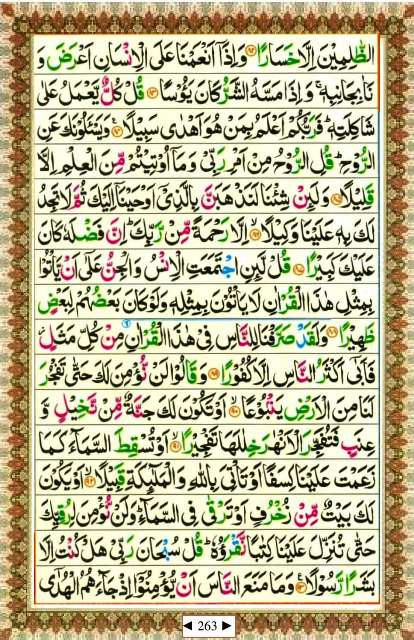 الظّٰلِمِيْنَ اِلَّا خَسَارًا ﴿٨٢﴾ وَاِذَآ اَنْعَمْنَا عَلَى الْاِنْسَانِ اَعْرَضَ وَ
نَاٰ بِجَانِبِهٖ ۚ وَاِذَا مَسَّهُ الشَّرُّ كَانَ يَـُٔوْسًا ﴿٨٣﴾ قُلْ كُلٌّ يَّعْمَلُ عَلٰى
شَاكِلَتِهٖ ؕ فَرَبُّكُمْ اَعْلَمُ بِمَنْ هُوَ اَهْدٰى سَبِيْلًا ﴿٨٤﴾ وَيَسْـَٔلُوْنَكَ عَنِ
الرُّوْحِ ؕ قُلِ الرُّوْحُ مِنْ اَمْرِ رَبِّيْ وَمَآ اُوْتِيْتُمْ مِّنَ الْعِلْمِ اِلَّا
قَلِيْلًا ﴿٨٥﴾ وَلَىِٕنْ شِئْنَا لَنَذْهَبَنَّ بِالَّذِيْٓ اَوْحَيْنَآ اِلَيْكَ ثُمَّ لَا تَجِدُ
لَكَ بِهٖ عَلَيْنَا وَكِيْلًا ﴿٨٦﴾ اِلَّا رَحْمَةً مِّنْ رَّبِّكَ ؕ اِنَّ فَضْلَهٗ كَانَ
عَلَيْكَ كَبِيْرًا ﴿٨٧﴾ قُلْ لَّىِٕنِ اجْتَمَعَتِ الْاِنْسُ وَالْجِنُّ عَلٰٓى اَنْ يَّاْتُوْا
بِمِثْلِ هٰذَا الْقُرْاٰنِ لَا يَاْتُوْنَ بِمِثْلِهٖ وَلَوْ كَانَ بَعْضُهُمْ لِبَعْضٍ
ظَهِيْرًا ﴿٨٨﴾ وَلَقَدْ صَرَّفْنَا لِلنَّاسِ فِيْ هٰذَا الْقُرْاٰنِ مِنْ كُلِّ مَثَلٍ ؗ
فَاَبٰٓى اَكْثَرُ النَّاسِ اِلَّا كُفُوْرًا ﴿٨٩﴾ وَقَالُوْا لَنْ نُّؤْمِنَ لَكَ حَتّٰى تَفْجُرَ
لَنَا مِنَ الْاَرْضِ يَنْۢبُوْعًا ﴿٩٠﴾ اَوْ تَكُوْنَ لَكَ جَنَّةٌ مِّنْ نَّخِيْلٍ وَّ
عِنَبٍ فَتُفَجِّرَ الْاَنْهٰرَ خِلٰلَهَا تَفْجِيْرًا ﴿٩١﴾ اَوْ تُسْقِطَ السَّمَآءَ كَمَا
زَعَمْتَ عَلَيْنَا كِسَفًا اَوْ تَاْتِيَ بِاللّٰهِ وَالْمَلٰٓىِٕكَةِ قَبِيْلًا ﴿٩٢﴾ اَوْ يَكُوْنَ
لَكَ بَيْتٌ مِّنْ زُخْرُفٍ اَوْ تَرْقٰى فِي السَّمَآءِ ؕ وَلَنْ نُّؤْمِنَ لِرُقِيِّكَ
حَتّٰى تُنَزِّلَ عَلَيْنَا كِتٰبًا نَّقْرَؤُهٗ ؕ قُلْ سُبْحَانَ رَبِّيْ هَلْ كُنْتُ اِلَّا
بَشَرًا رَّسُوْلًا ﴿٩٣﴾ وَمَا مَنَعَ النَّاسَ اَنْ يُّؤْمِنُوْٓا اِذْ جَآءَهُمُ الْهُدٰٓى
◄ 263 ►